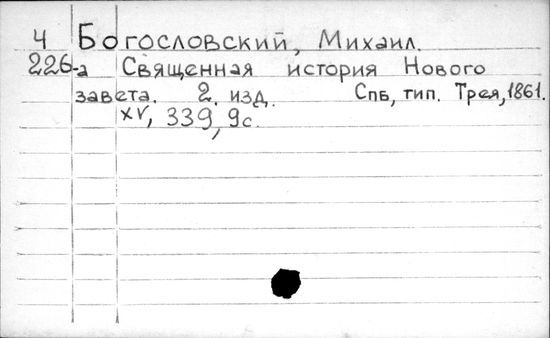 4 Богословский, Михаил.
226-а Священная история Нового
завета. 2. изд. Спб, тип. Трея, 1861.
XV, 339, 9 с.